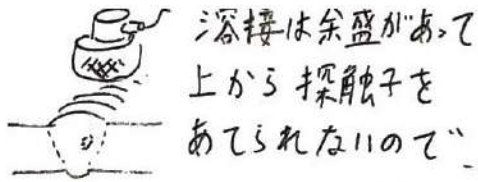 溶接は余盛があって
上から探触子を
あてられないので